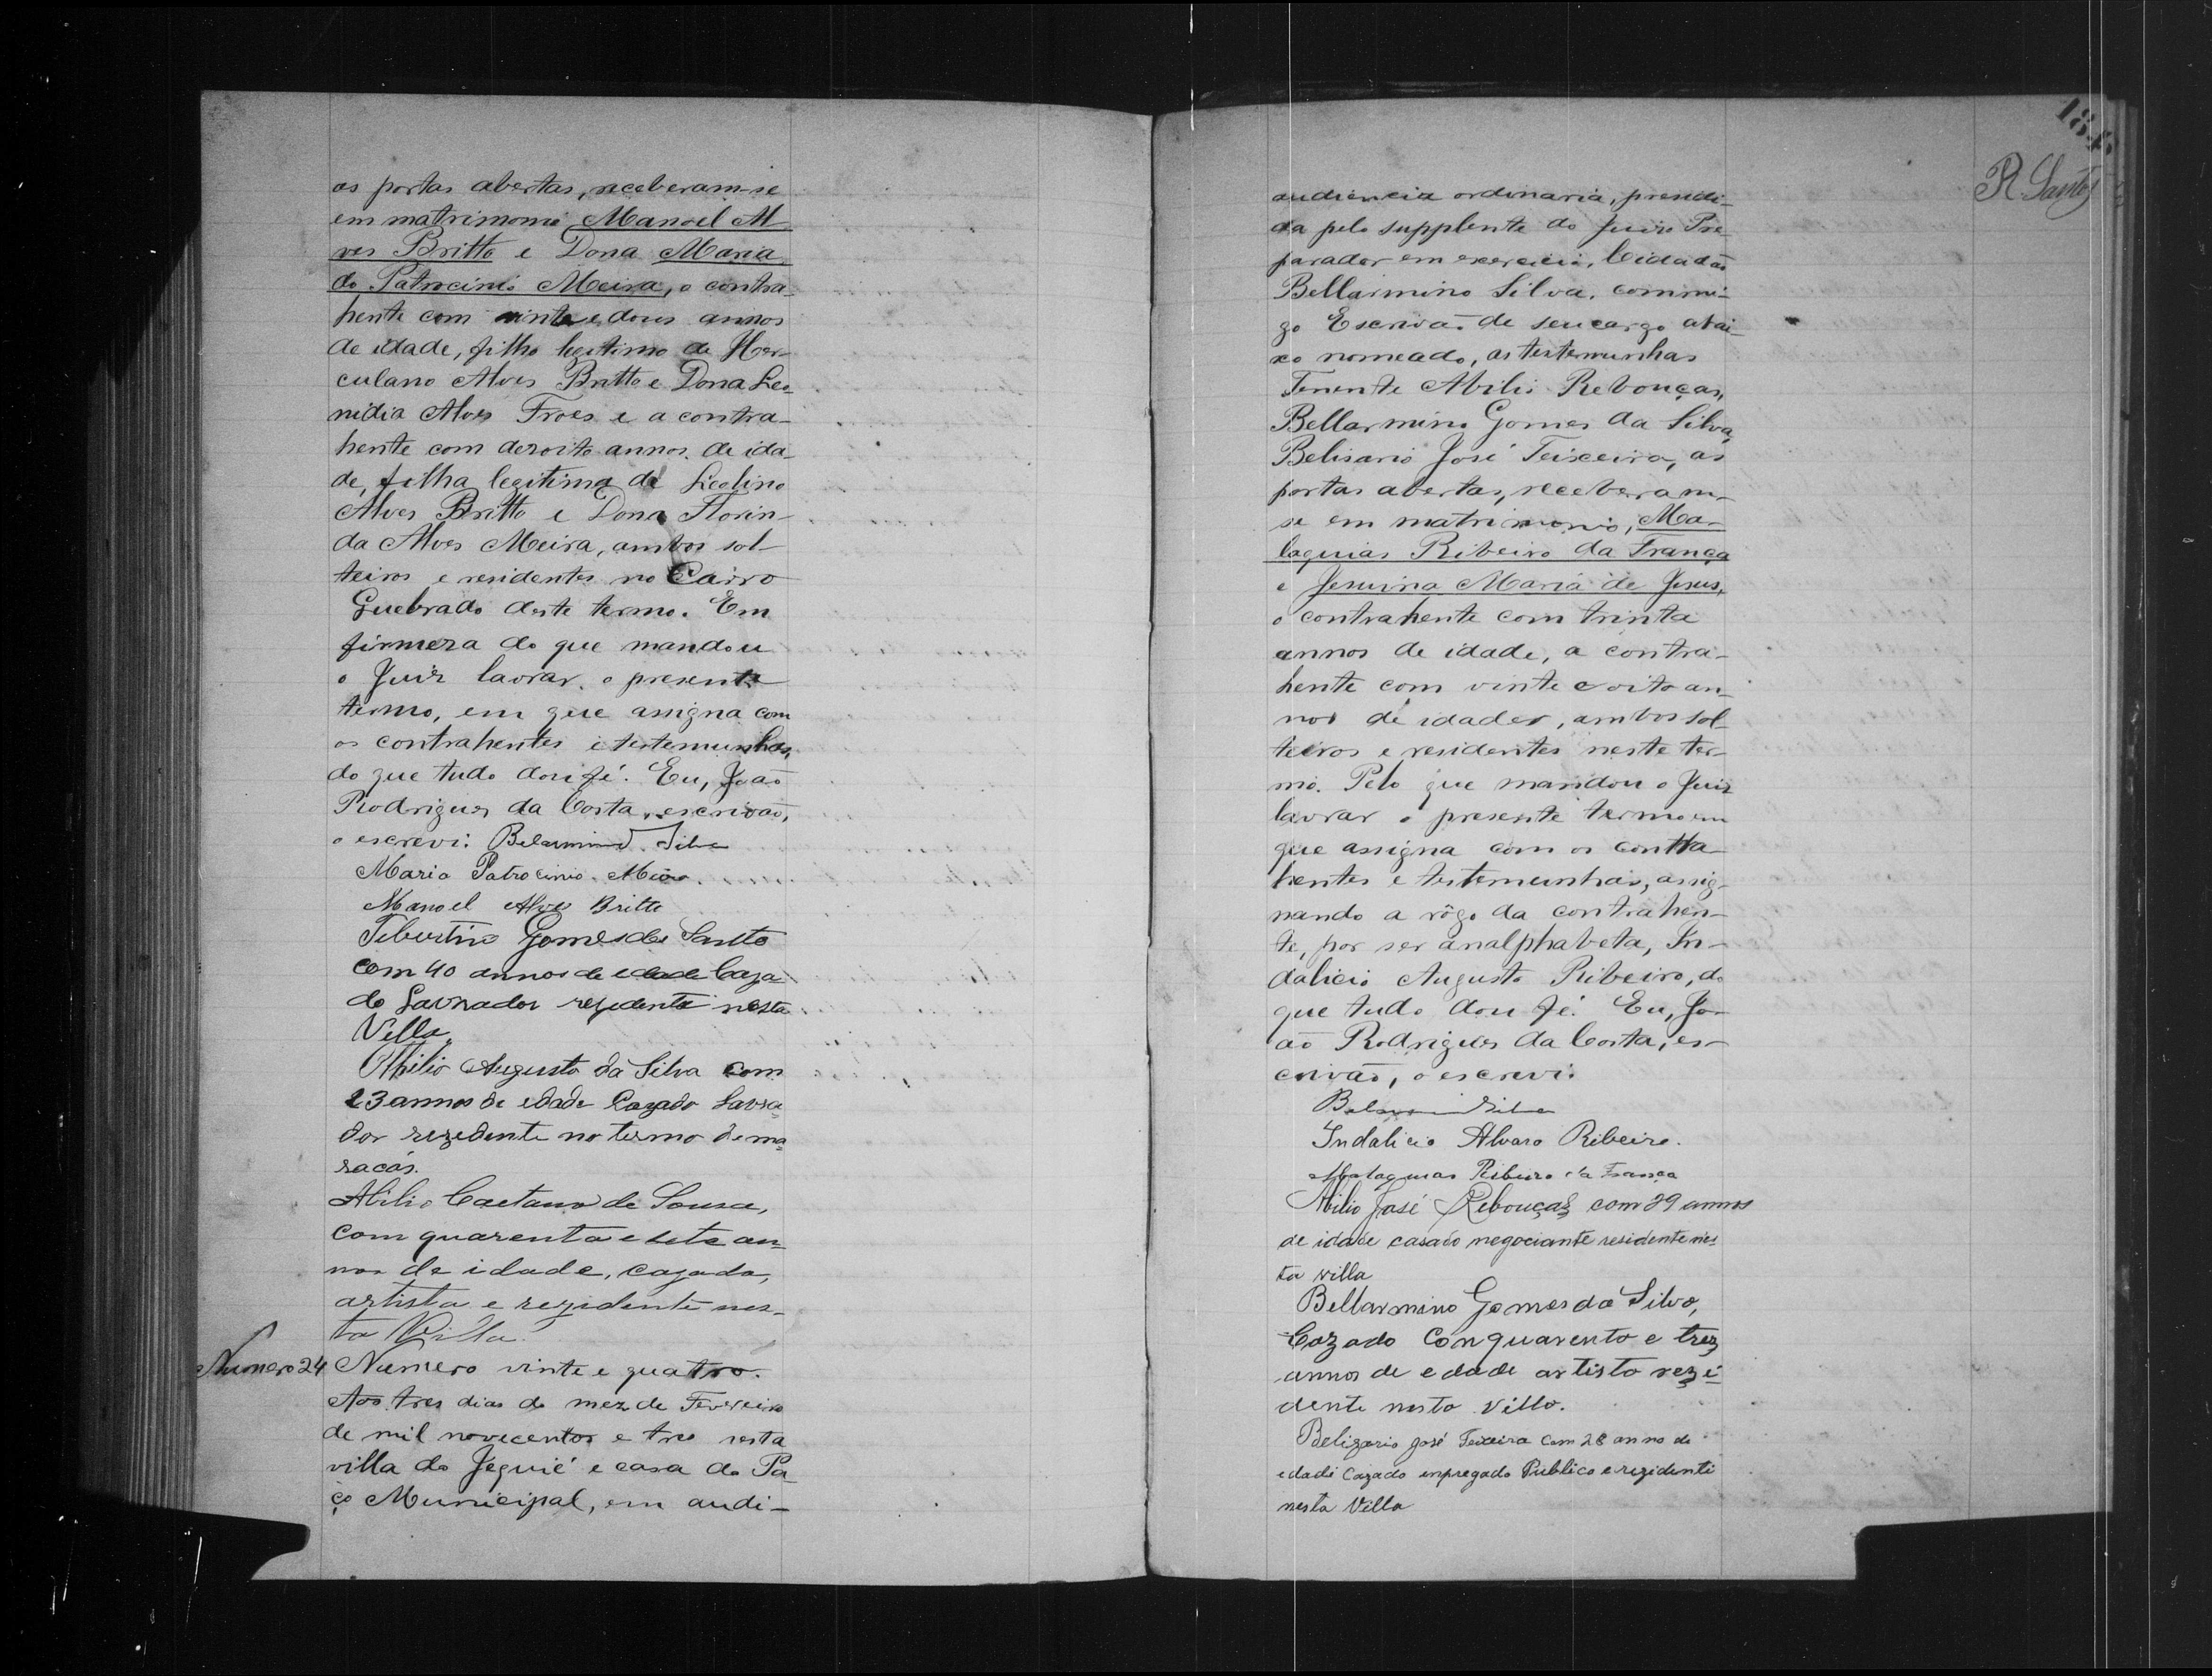 as portas abertas, receberam-se
em matrimonio Manoel Al
ves Britto e Dona Maria
do Patrocinio Meira, o contra-
hente com vinte e dous annos
de idade, filho legitimo de Her-
culano Alves Britto e Dona Leo-
nidia Alves Froes e a contra-
hente com dezoito annos de ida-
de, filha legitima de Licolino
Alves Britto e Dona Florin-
da Alves Meira, ambos sol-
teiros e residentes no Cairro
Quebrado deste termo. Em
firmeza do que mandou
o Juiz lavrar o presente
termo, em que assigna com
os contrahentes e testemunhas,
do que tudo dou fé. Eu, João
Rodrigues da Costa, escrivão,
o escrevi. Belarmino Silva
Maria Patrocinio Meira.
Manoel Alves Britto
Tiburtino Gomes dos Santo
com 40 annos de edade Caza-
do Lavrador rezidente nesta
Villa.
Othilio Augusto da Silva com
23 annos de edade Cazado Lavra
dor rezedente no termo de ma
racás.
Abilio Caetano de Sousa,
com quarenta e sete an-
nos de idade, cazado,
artista e rezidente nes-
ta Villa.
Numero 24 Numero vinte e quatro.
Aos tres dias do mez de Fevereiro
de mil novecentos e tres nesta
villa do Jequié e casa do Pa-
ço Municipal, em audi-
184
R. Santos
audiencia ordinaria, presidi-
da pelo supplente do Juizo Pre-
parador em exercicio, Cidadão
Bellarmino Silva, commi-
go Escrivão de seu cargo abai-
xo nomeado, as testemunhas
Tenente Abilio Rebouças,
Bellarmino Gomes da Silva,
Belisario José Teixeira, as
portas abertas, receberam-
se em matrimonio, Ma-
laquias Ribeiro da França
e Jesuina Maria de Jesus,
o contrahente com trinta
annos de idade, a contra-
hente com vinte e oito an-
nos de idades, ambos sol-
teiros e residentes neste ter-
mo. Pelo que mandou o Juiz
lavrar o presente termo em
que assigna com os contra-
hentes e testemunhas, assig-
nando a rôgo da contrahen-
te, por ser analphabeta, In-
dalicio Augusto Ribeiro, do
que tudo dou fé. Eu, Jo-
ão Rodrigues da Costa, es-
crivão, o escrevi.
Belarmino Silva
Indalicio Alvaro Ribeiro.
Malaquias Ribeiro da França
Abilio José Rebouças com 29 annos
de idade casado negociante residente nes
ta villa
Bellarmino Gomes da Silva,
Cazado Con quarento e trez
annos de edade artisto rezi-
dente nesta Villa.
Belizario José Teixeira Com 28 anno de
edade Cazado enpregado Publico e rezidenti
nesta Villa